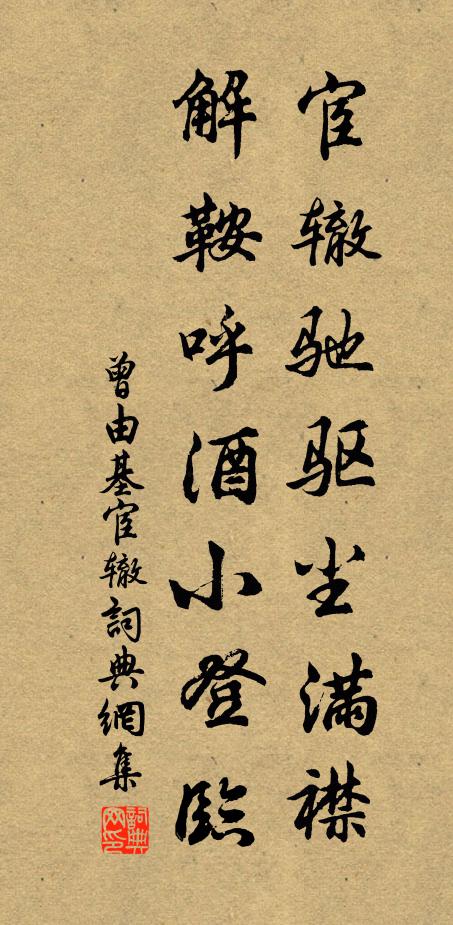 宦辙驰驱尘满襟
解鞍呼酒小登臨
曾由基宦辙詞典網集
詞典网印